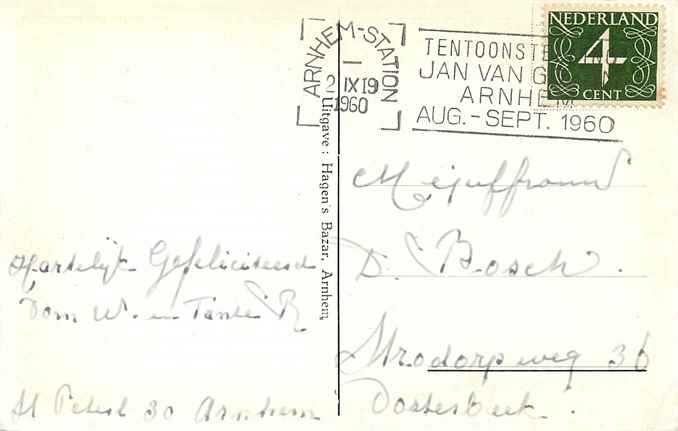 ARNHEM-STATION
2 IX 19
1960
TENTOONSTE
JAN VAN G
ARNHEM
AUG.-SEPT. 1960
NEDERLAND
4
CENT
Uitgave: Hagen's Bazar, Arnhem
Hartelijk Gefeliciteerd
Oom W. en Tante R
30 Arnhem
Mejuffrouw
D. Bosch.
weg 36
Oosterbeek.